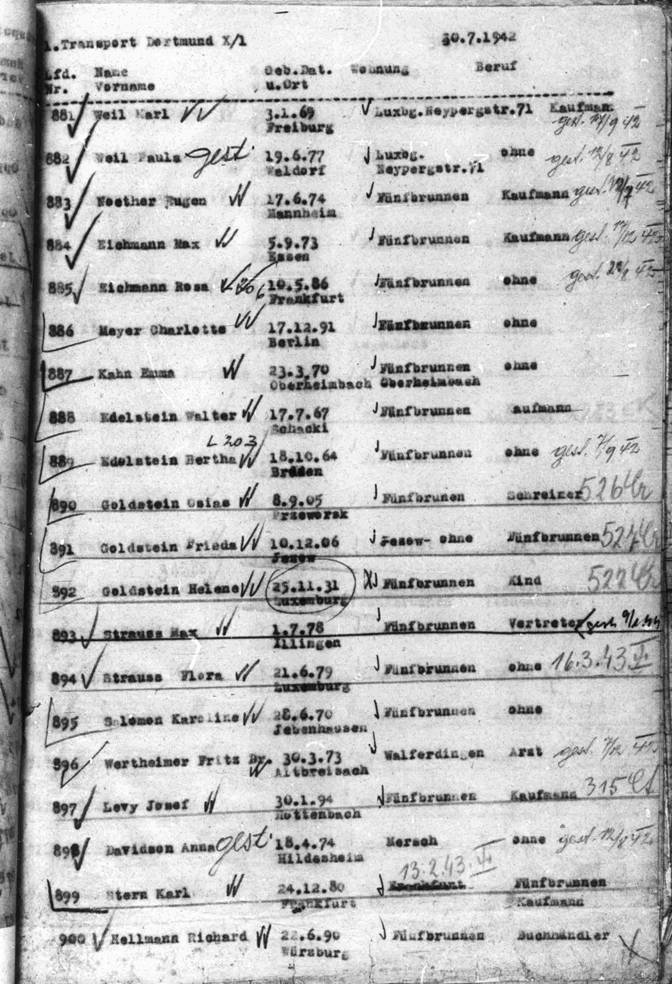 1.Transport Dortmund X/1 30.7.1942
Lfd. Name Geb.Dat. Wohnung Beruf
Nr. Vorname u.Ort
881 Weil Karl 3.1.69 Luxbg.Neypergstr.71 Kaufmann
Freiburg gest. 42
882 Weil Paula gest. 19.6.77 Luxbg. ohne gest. 12/8 42
Waldorf Neypergstr.71
883 Noether Eugen 17.6.74 Fünfbrunnen Kaufmann gest. 42
Mannheim
884 Eichmann Max 5.9.73 Fünfbrunnen Kaufmann gest.
Essen
885 Eichmann Rosa 10.5.86 Fünfbrunnen ohne gest.
Frankfurt
886 Meyer Charlotte 17.12.91 Fünfbrunnen ohne
Berlin
887 Kahn Emma 23.3.70 Fünfbrunnen ohne
Oberheimbach Oberheimbach
888 Edelstein Walter 17.7.67 Fünfbrunnen aufmann
Schacki
L 203
889 Edelstein Bertha 18.10.64 Fünfbrunnen ohne gest. 7/9 42
890 Goldstein Osias 8.9.05 Fünfbrunen Schreiner 526
Przeworsk
891 Goldstein Frieda 10.12.06 Jezow- ohne Fünfbrunnen 524
Jezow
892 Goldstein Helene 25.11.31 Fünfbrunnen Kind 522
Luxemburg
893 Strauss Max 1.7.78 Fünfbrunnen Vertreter gest.
Illingen
894 Strauss Flora 21.6.79 Fünfbrunnen ohne 16.3.43
Luxemburg
895 Salomon Karoline 28.6.70 Fünfbrunnen ohne
Jebenhausen
896 Wertheimer Fritz Dr. 30.3.73 Walferdingen Arzt gest.
Altbreisach
897 Levy Josef 30.1.94 Fünfbrunnen Kaufmann 315
Hottenbach
898 Davidson Anna gest. 18.4.74 Mersch ohne gest. 12/8 42
Hildesheim
13.2.43
899 Stern Karl 24.12.80 Frankfurt Fünfbrunnen
Frankfurt Kaufmann
900 Hellmann Richard 22.6.90 Fünfbrunnen Buchhändler
Würzburg